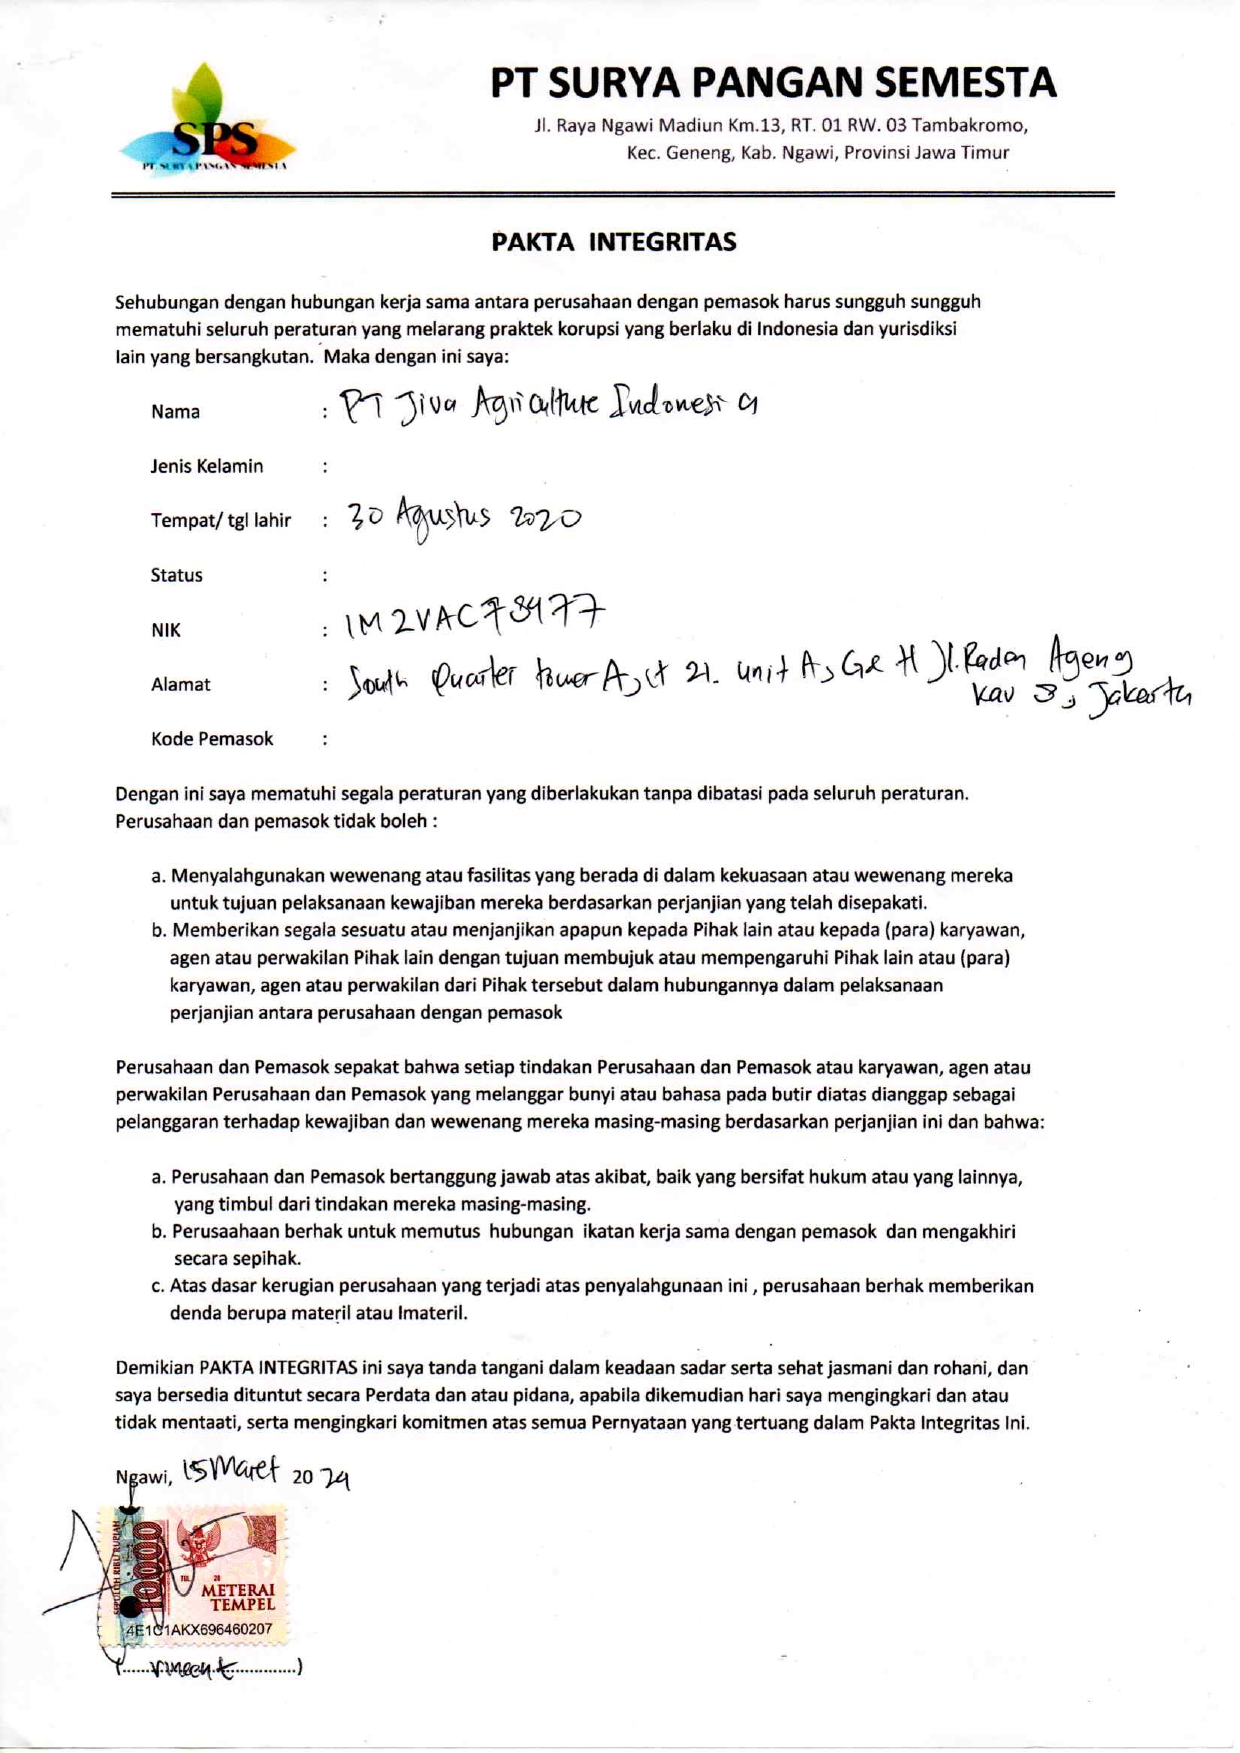 SPS
PT SURYA PANGAN SEMESTA
PT SURYA PANGAN SEMESTA
Jl. Raya Ngawi Madiun Km.13, RT. 01 RW. 03 Tambakromo,
Kec. Geneng, Kab. Ngawi, Provinsi Jawa Timur
PAKTA INTEGRITAS
Sehubungan dengan hubungan kerja sama antara perusahaan dengan pemasok harus sungguh sungguh
mematuhi seluruh peraturan yang melarang praktek korupsi yang berlaku di Indonesia dan yurisdiksi
lain yang bersangkutan. Maka dengan ini saya:
Nama : PT Jiva Agriculture Indonesia
Jenis Kelamin :
Tempat/ tgl lahir : 30 Agustus 2020
Status :
NIK : 1M2VAC78477
Alamat : South Quarter tower A, Lt 21. Unit A, G& H Jl. Raden Ageng
Kav 8, Jakarta
Kode Pemasok :
Dengan ini saya mematuhi segala peraturan yang diberlakukan tanpa dibatasi pada seluruh peraturan.
Perusahaan dan pemasok tidak boleh :
a. Menyalahgunakan wewenang atau fasilitas yang berada di dalam kekuasaan atau wewenang mereka
untuk tujuan pelaksanaan kewajiban mereka berdasarkan perjanjian yang telah disepakati.
b. Memberikan segala sesuatu atau menjanjikan apapun kepada Pihak lain atau kepada (para) karyawan,
agen atau perwakilan Pihak lain dengan tujuan membujuk atau mempengaruhi Pihak lain atau (para)
karyawan, agen atau perwakilan dari Pihak tersebut dalam hubungannya dalam pelaksanaan
perjanjian antara perusahaan dengan pemasok
Perusahaan dan Pemasok sepakat bahwa setiap tindakan Perusahaan dan Pemasok atau karyawan, agen atau
perwakilan Perusahaan dan Pemasok yang melanggar bunyi atau bahasa pada butir diatas dianggap sebagai
pelanggaran terhadap kewajiban dan wewenang mereka masing-masing berdasarkan perjanjian ini dan bahwa:
a. Perusahaan dan Pemasok bertanggung jawab atas akibat, baik yang bersifat hukum atau yang lainnya,
yang timbul dari tindakan mereka masing-masing.
b. Perusaahaan berhak untuk memutus hubungan ikatan kerja sama dengan pemasok dan mengakhiri
secara sepihak.
c. Atas dasar kerugian perusahaan yang terjadi atas penyalahgunaan ini , perusahaan berhak memberikan
denda berupa materil atau Imateril.
Demikian PAKTA INTEGRITAS ini saya tanda tangani dalam keadaan sadar serta sehat jasmani dan rohani, dan
saya bersedia dituntut secara Perdata dan atau pidana, apabila dikemudian hari saya mengingkari dan atau
tidak mentaati, serta mengingkari komitmen atas semua Pernyataan yang tertuang dalam Pakta Integritas Ini.
Ngawi, 15 Maret 2024
SEPULUH RIBU RUPIAH
10000
TGL 20
METERAI
TEMPEL
4E1C1AKX696460207
(......Vincent..............)